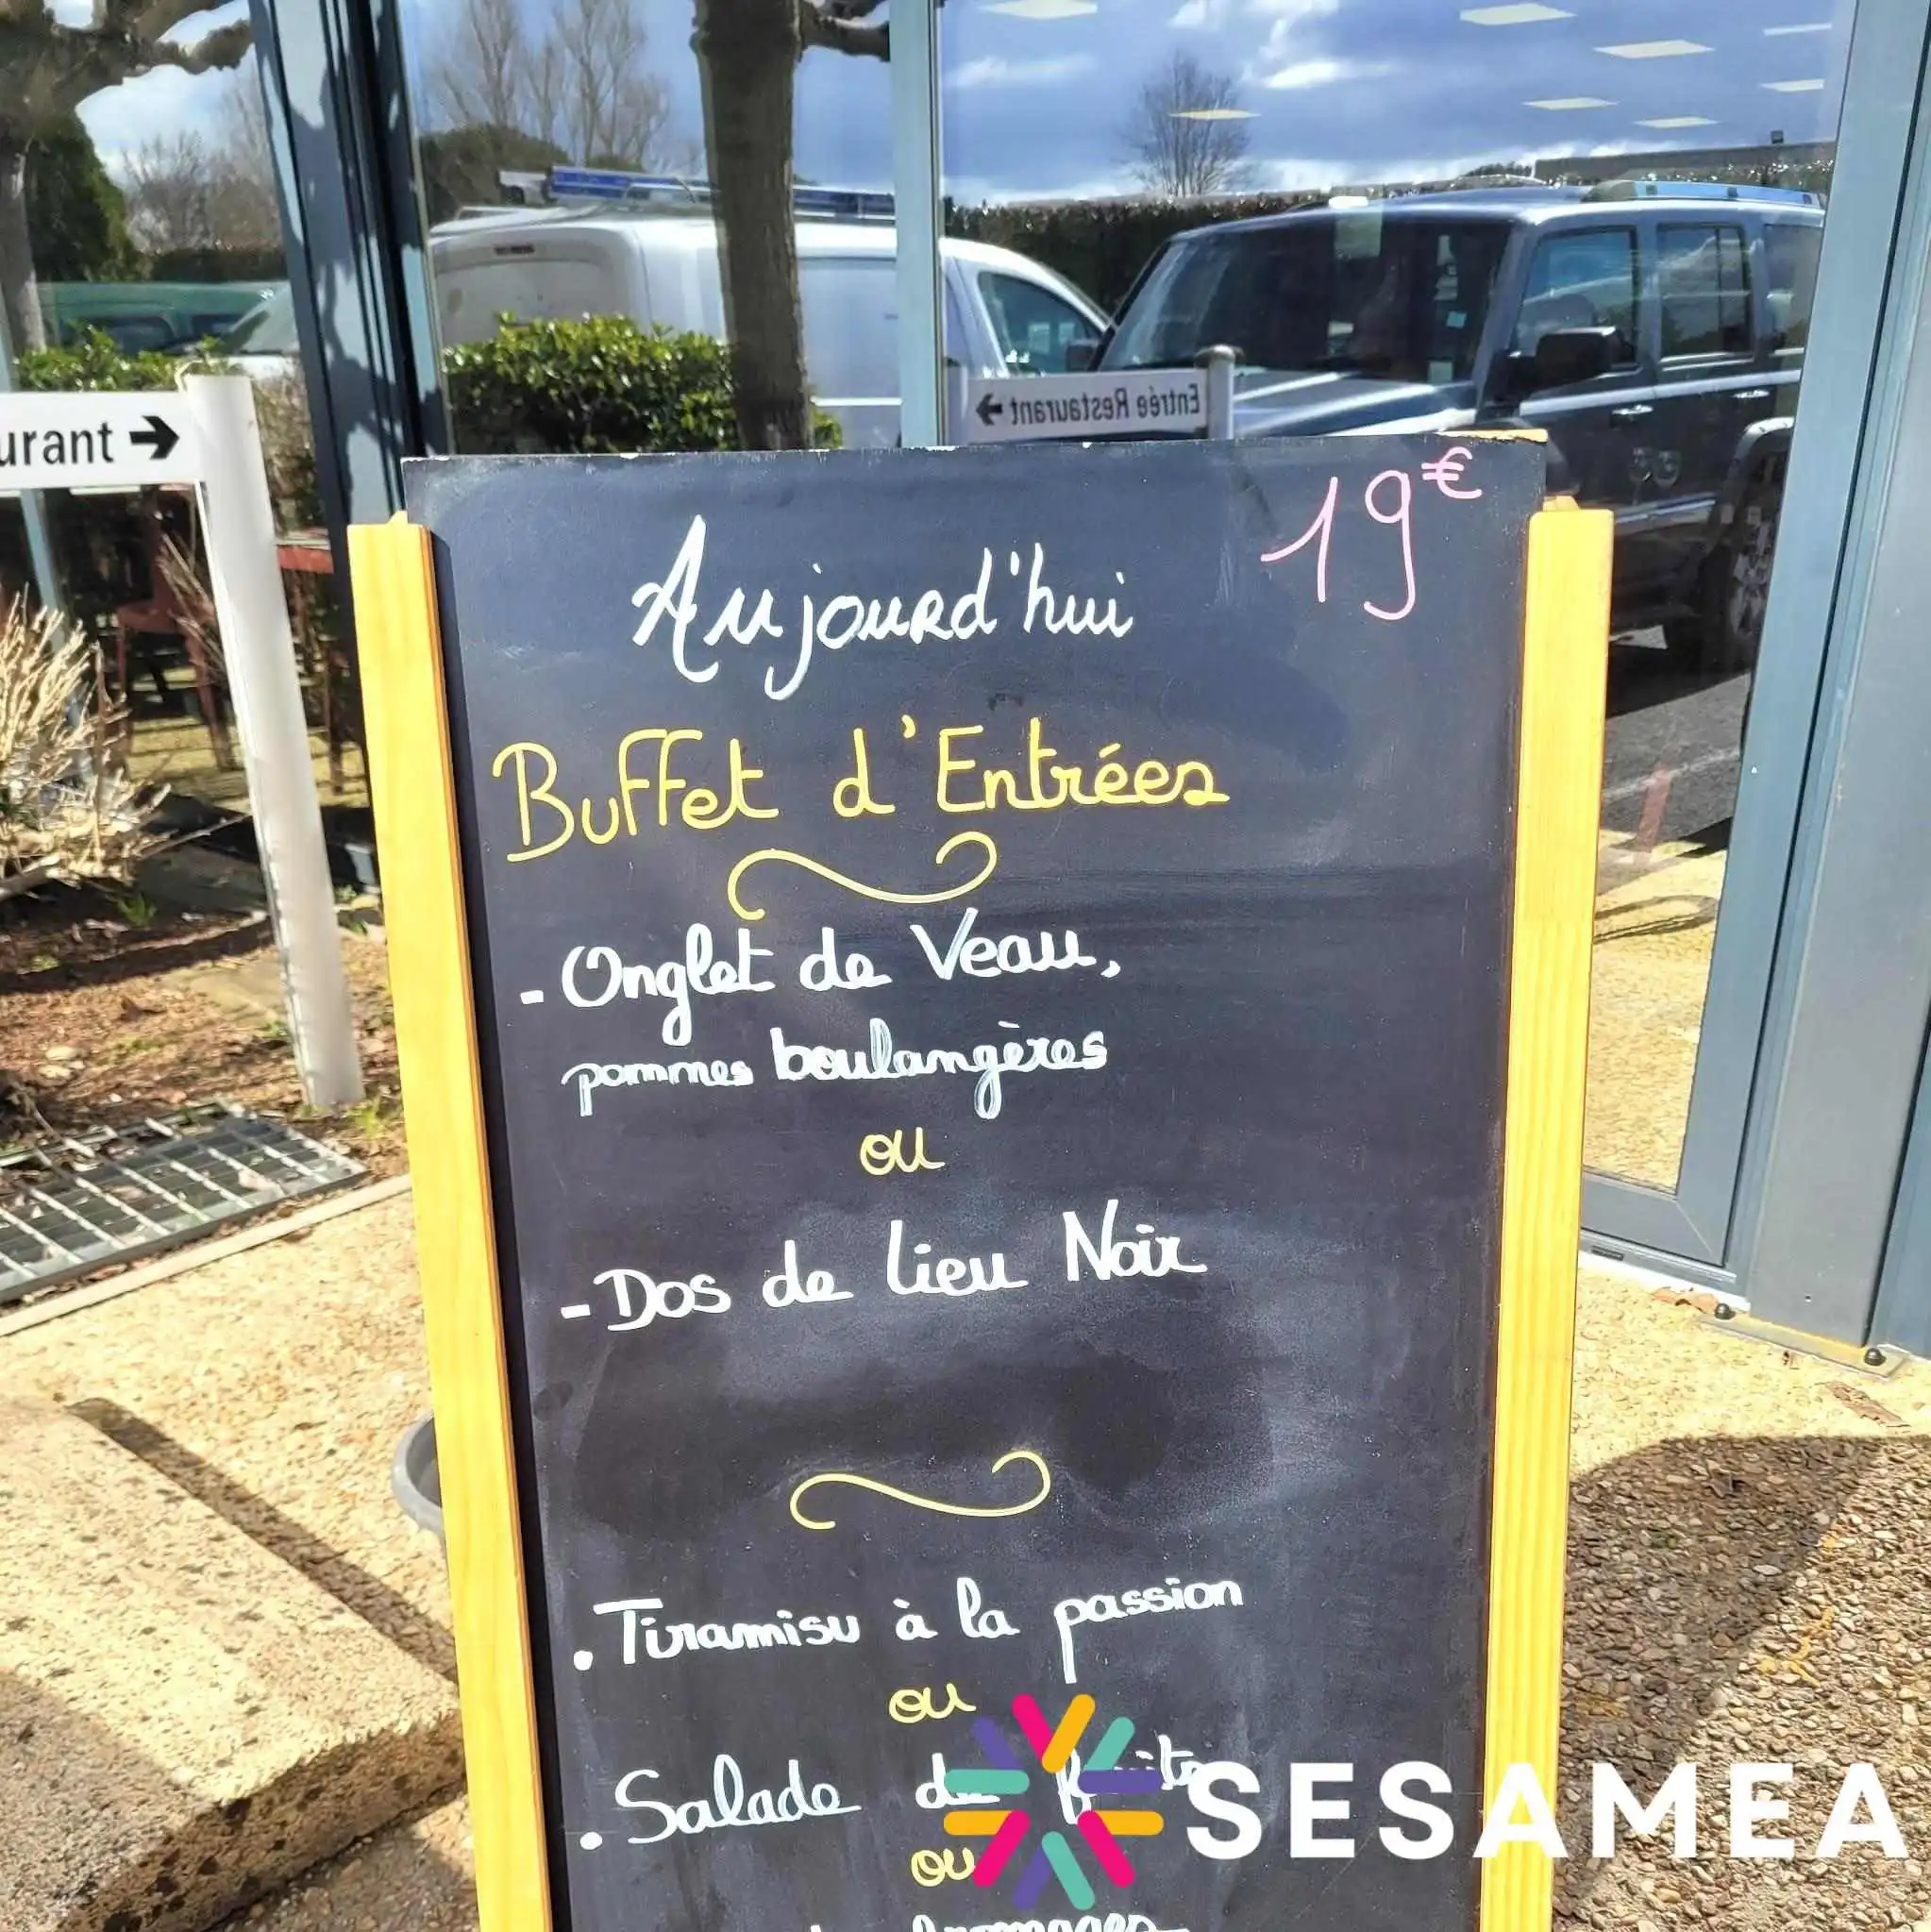 urant →
Entrée Restaurant
19€
Aujourd'hui
Buffet d'Entrées
- Onglet de Veau,
pommes boulangères
ou
- Dos de lieu Noir
. Tiramisu à la passion
ou
. Salade de fruits
SESAMEA
ou
fromages